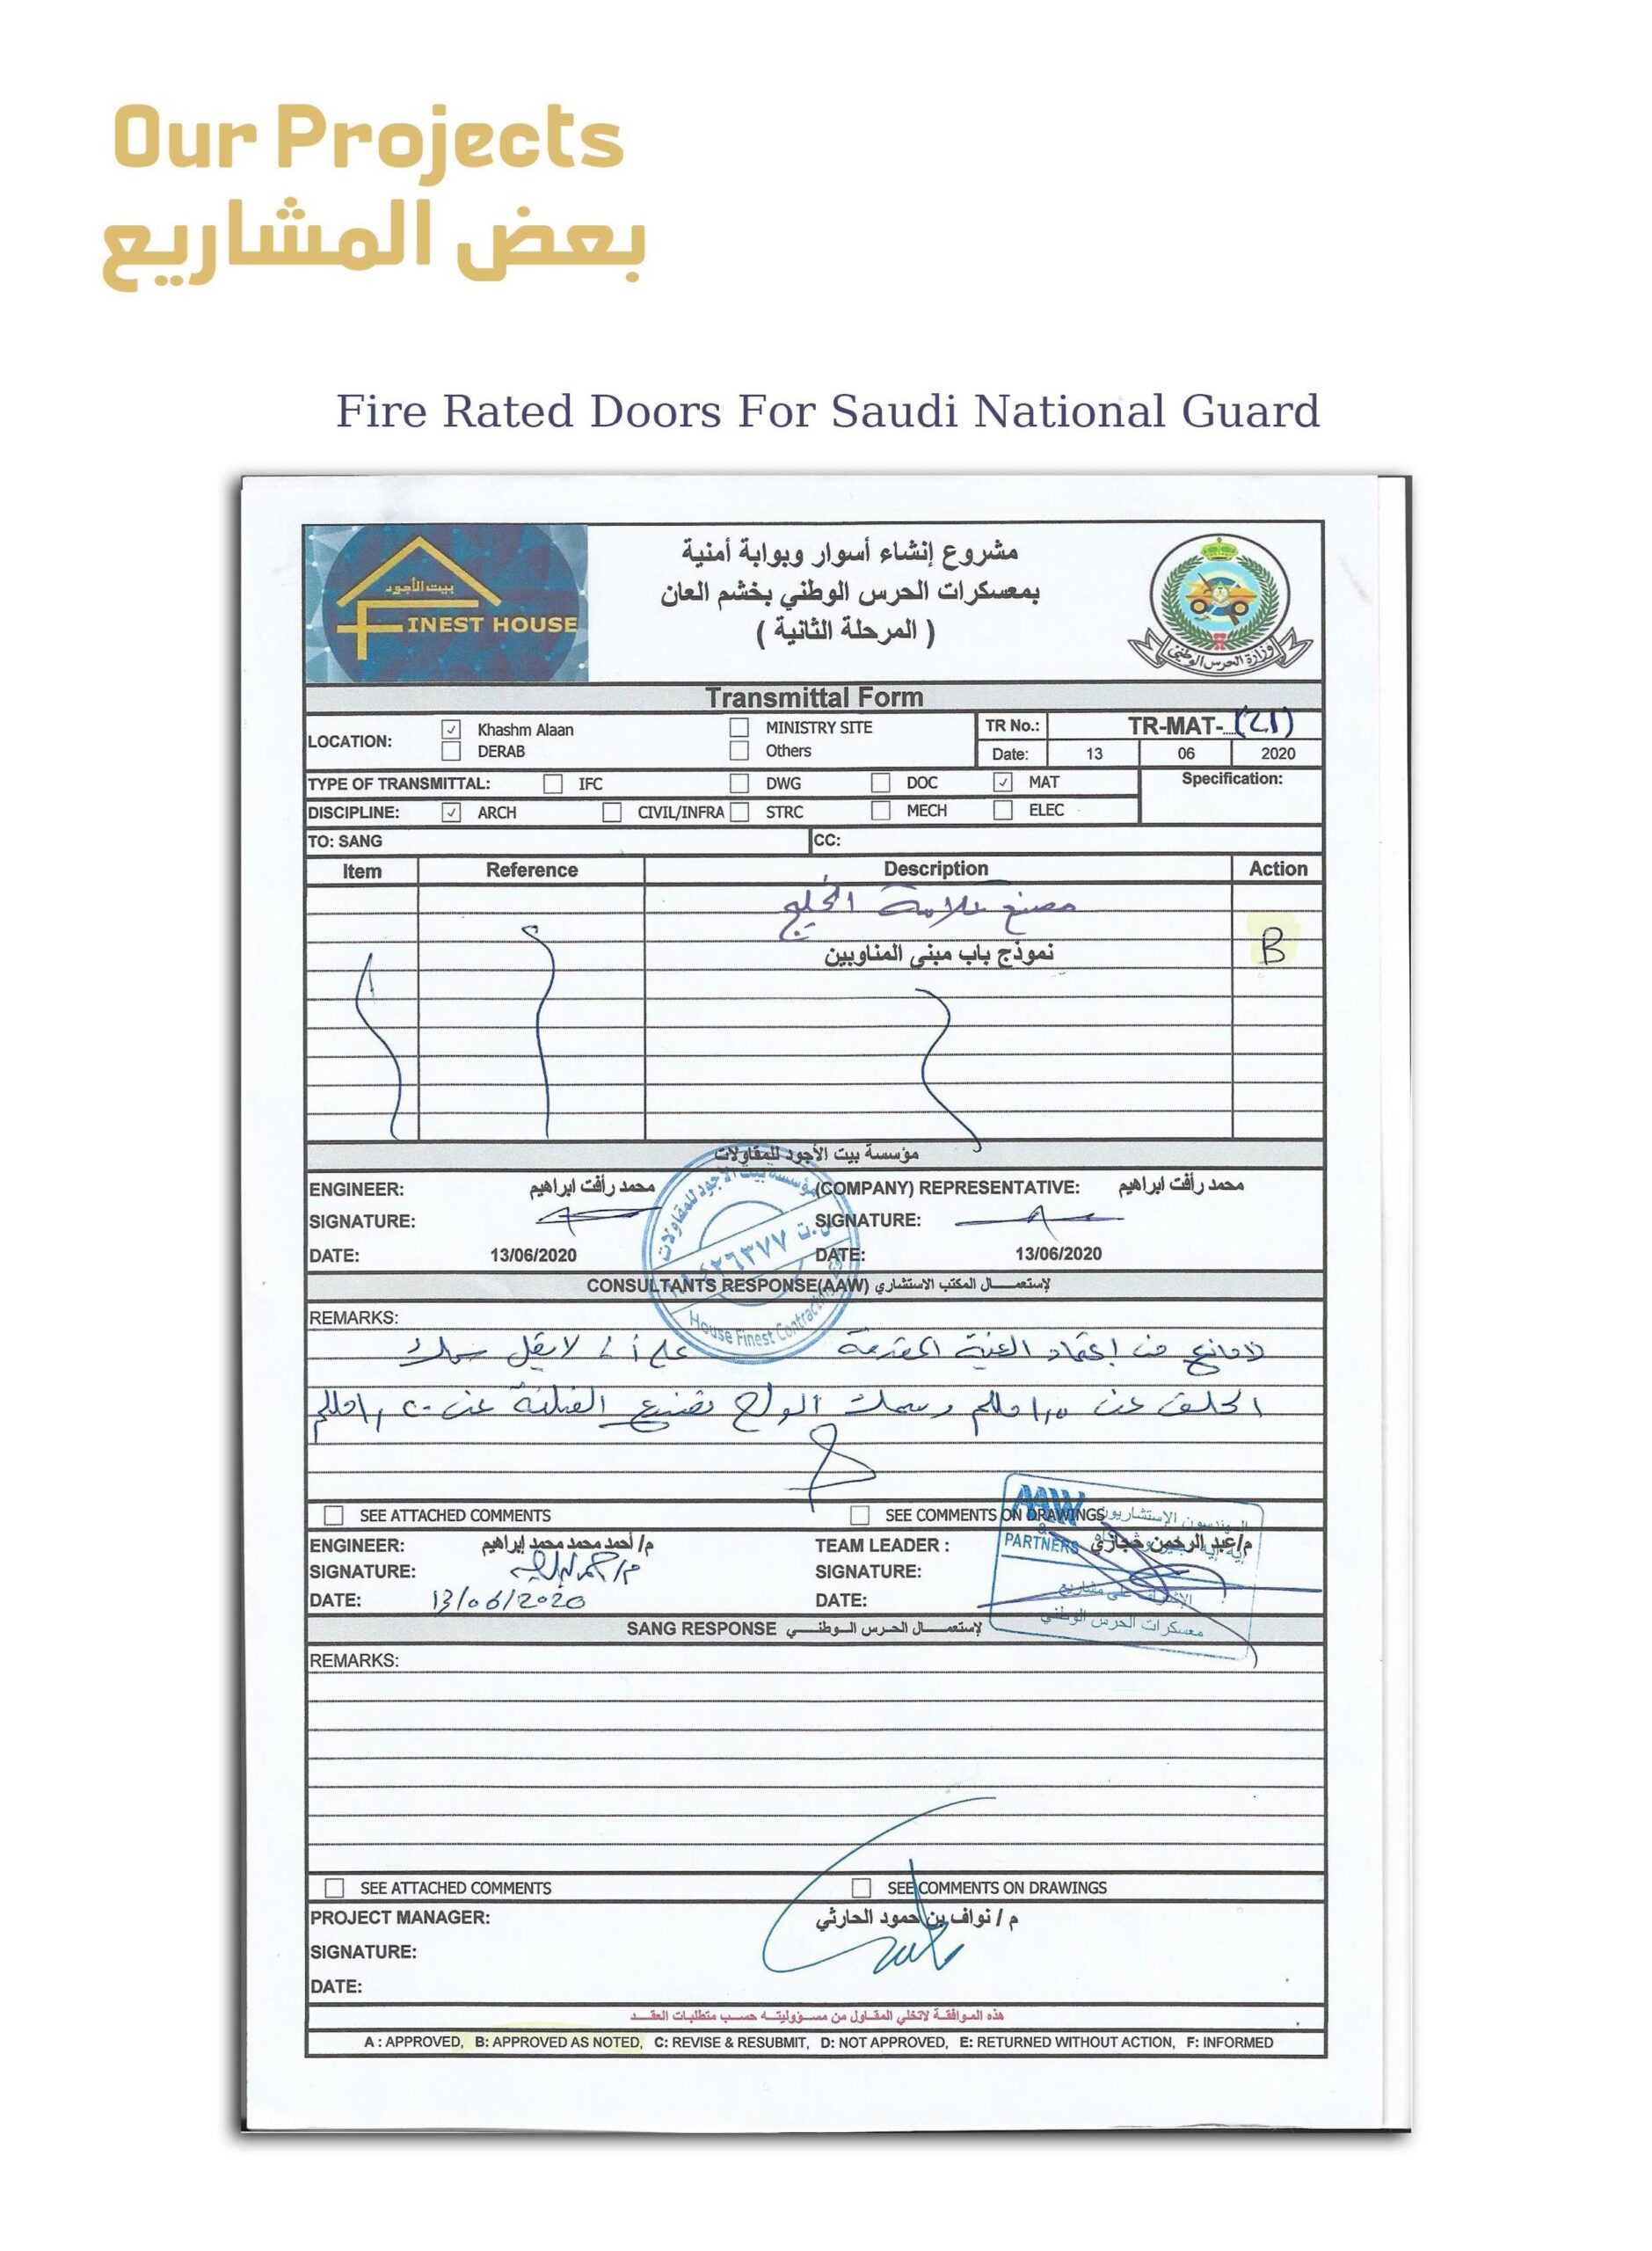 Our Projects
بعض المشاريع
Fire Rated Doors For Saudi National Guard
بيت الأجود
FINEST HOUSE
مشروع إنشاء أسوار وبوابة أمنية
بمعسكرات الحرس الوطني بخشم العان
( المرحلة الثانية )
وزارة الحرس الوطني
Transmittal Form
LOCATION: ✓ Khashm Alaan MINISTRY SITE TR No.: TR-MAT- (21)
DERAB Others Date: 13 06 2020
TYPE OF TRANSMITTAL: IFC DWG DOC ✓ MAT Specification:
DISCIPLINE: ✓ ARCH CIVIL/INFRA STRC MECH ELEC
TO: SANG CC:
Item Reference Description Action
مصنع علامة الخليج
نموذج باب مبنى المناوبين B
مؤسسة بيت الأجود للمقاولات
ENGINEER: محمد رأفت ابراهيم (COMPANY) REPRESENTATIVE: محمد رأفت ابراهيم
SIGNATURE: SIGNATURE:
DATE: 13/06/2020 DATE: 13/06/2020
مؤسسة بيت الأجود للمقاولات
House Finest Contracting
CONSULTANTS RESPONSE(AAW) لإستعمال المكتب الاستشاري
REMARKS:
لا مانع من إعتماد العينة المقدمة على أن لا يقل سمك
الحلق عن ١,٥ مللم وسمك الواح تصنيع الضلفة عن ١,٢٠ مللم
SEE ATTACHED COMMENTS SEE COMMENTS ON DRAWINGS
ENGINEER: م/ أحمد محمد محمد إبراهيم TEAM LEADER : م/عبد الرحمن حجازي
SIGNATURE: SIGNATURE:
DATE: 13/06/2020 DATE:
AAW & PARTNERS
معسكرات الحرس الوطني
SANG RESPONSE لإستعمال الحرس الوطني
REMARKS:
SEE ATTACHED COMMENTS SEE COMMENTS ON DRAWINGS
PROJECT MANAGER: م / نواف بن حمود الحارثي
SIGNATURE:
DATE:
هذه الموافقة لاتخلي المقاول من مسؤوليته حسب متطلبات العقد
A : APPROVED, B: APPROVED AS NOTED, C: REVISE & RESUBMIT, D: NOT APPROVED, E: RETURNED WITHOUT ACTION, F: INFORMED